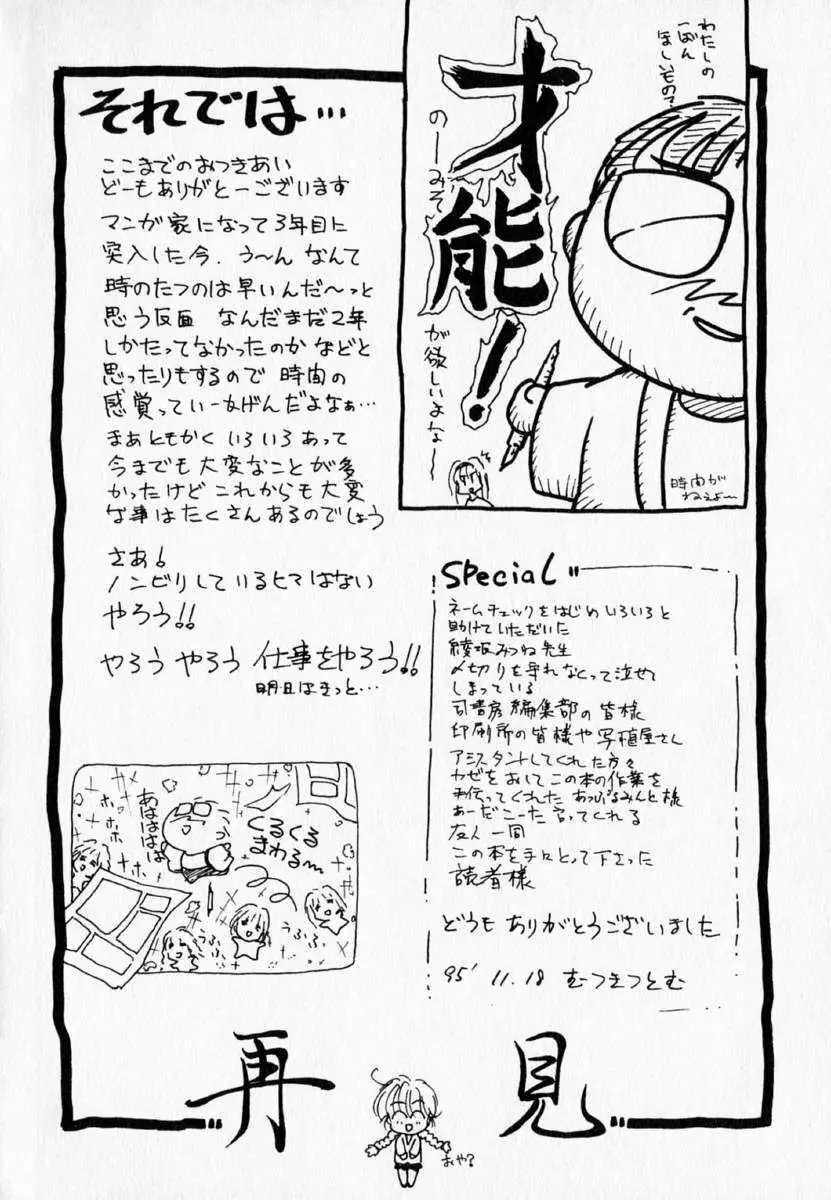 わたしの
一ばん
ほしいもの?
才能!
のーみそ
が欲しいよな〜
時間が
ねぇよ〜
それでは…
ここまでのおつきあい
どーもありがとーございます
マンガ家になって3年目に
突入した今、う〜ん なんて
時のたつのは早いんだ〜っと
思う反面 なんだまだ2年
しかたってなかったのか などと
思ったりもするので 時間の
感覚っていーかげんだよなぁ…
まぁともかく いろいろあって
今までも大変なことが多
かったけど これからも大変
な事はたくさんあるのでしょう
さあ!
ノンビリしているヒマはない
やろう!!
やろう やろう 仕事をやろう!!
明日はきっと…
Special
ネームチェックをはじめ いろいろと
助けていただいた
綾坂みつね先生
〆切りを守れなくって泣せて
しまっている
司書房編集部の皆様
印刷所の皆様や写植屋さん
アシスタントしてくれた方々
カゼをおしてこの本の作業を
手伝ってくれた あっぷるみんと様
あーだこーだ言ってくれる
友人一同
この本を手にとって下さった
読者様
どうも ありがとうございました
95' 11.18 むつきつとむ
あはははは
ホホホ
ホホホ
くるくる
まわる〜
うふふ
再見
おや?